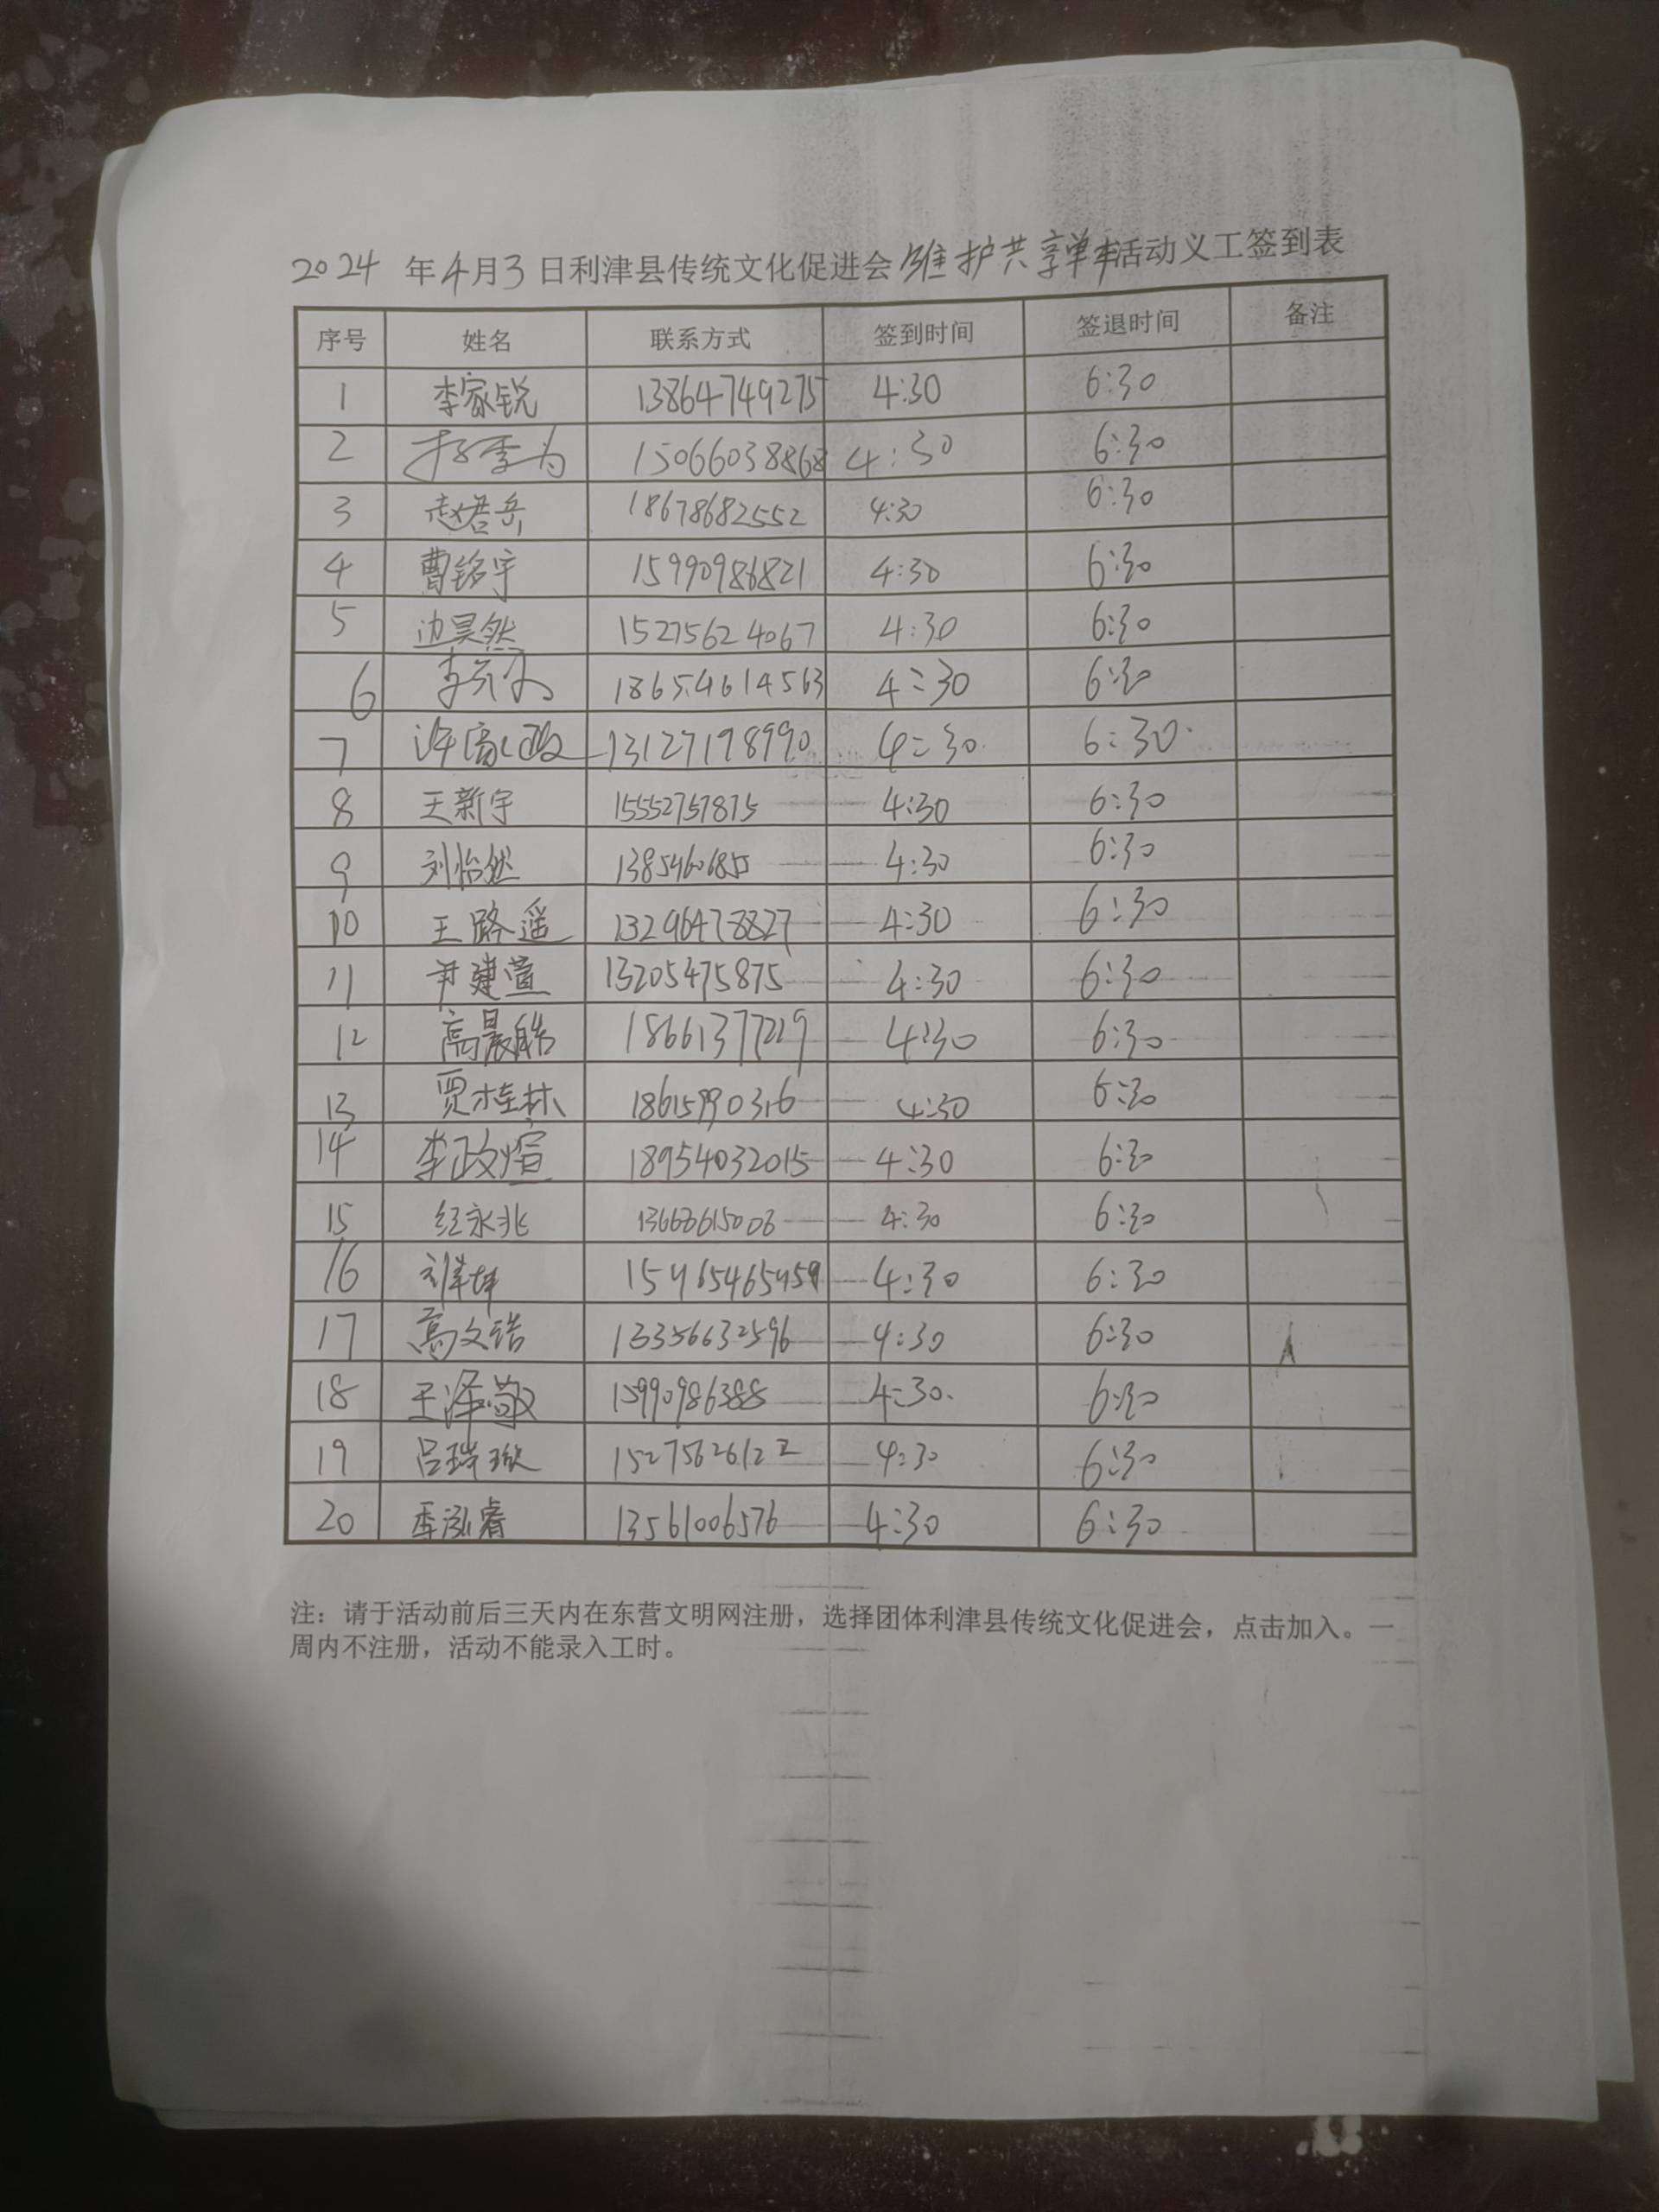 2024 年4月3日利津县传统文化促进会维护共享单车活动义工签到表
序号 姓名 联系方式 签到时间 签退时间 备注
1 李家锐 13864749275 4:30 6:30
2 15066038868 4:30 6:30
3 赵君岳 18678682552 4:30 6:30
4 曹铭宇 15990986821 4:30 6:30
5 边昊然 15275624067 4:30 6:30
6 18654614563 4:30 6:30
7 许家政 13127198990 4:30 6:30
8 王新宇 15552757875 4:30 6:30
9 刘怡然 4:30 6:30
10 王路遥 13296478827 4:30 6:30
11 尹建萱 13205475875 4:30 6:30
12 高晨皓 18661377219 4:30 6:30
13 贾桂林 4:30 6:30
14 李政煊 18954032015 4:30 6:30
15 纪永兆 4:30 6:30
16 15465465459 4:30 6:30
17 高文浩 13356632596 4:30 6:30
18 王泽敬 15990986388 4:30 6:30
19 吕瑞璇 15275626122 4:30 6:30
20 季泓睿 13561006576 4:30 6:30
注：请于活动前后三天内在东营文明网注册，选择团体利津县传统文化促进会，点击加入。一
周内不注册，活动不能录入工时。